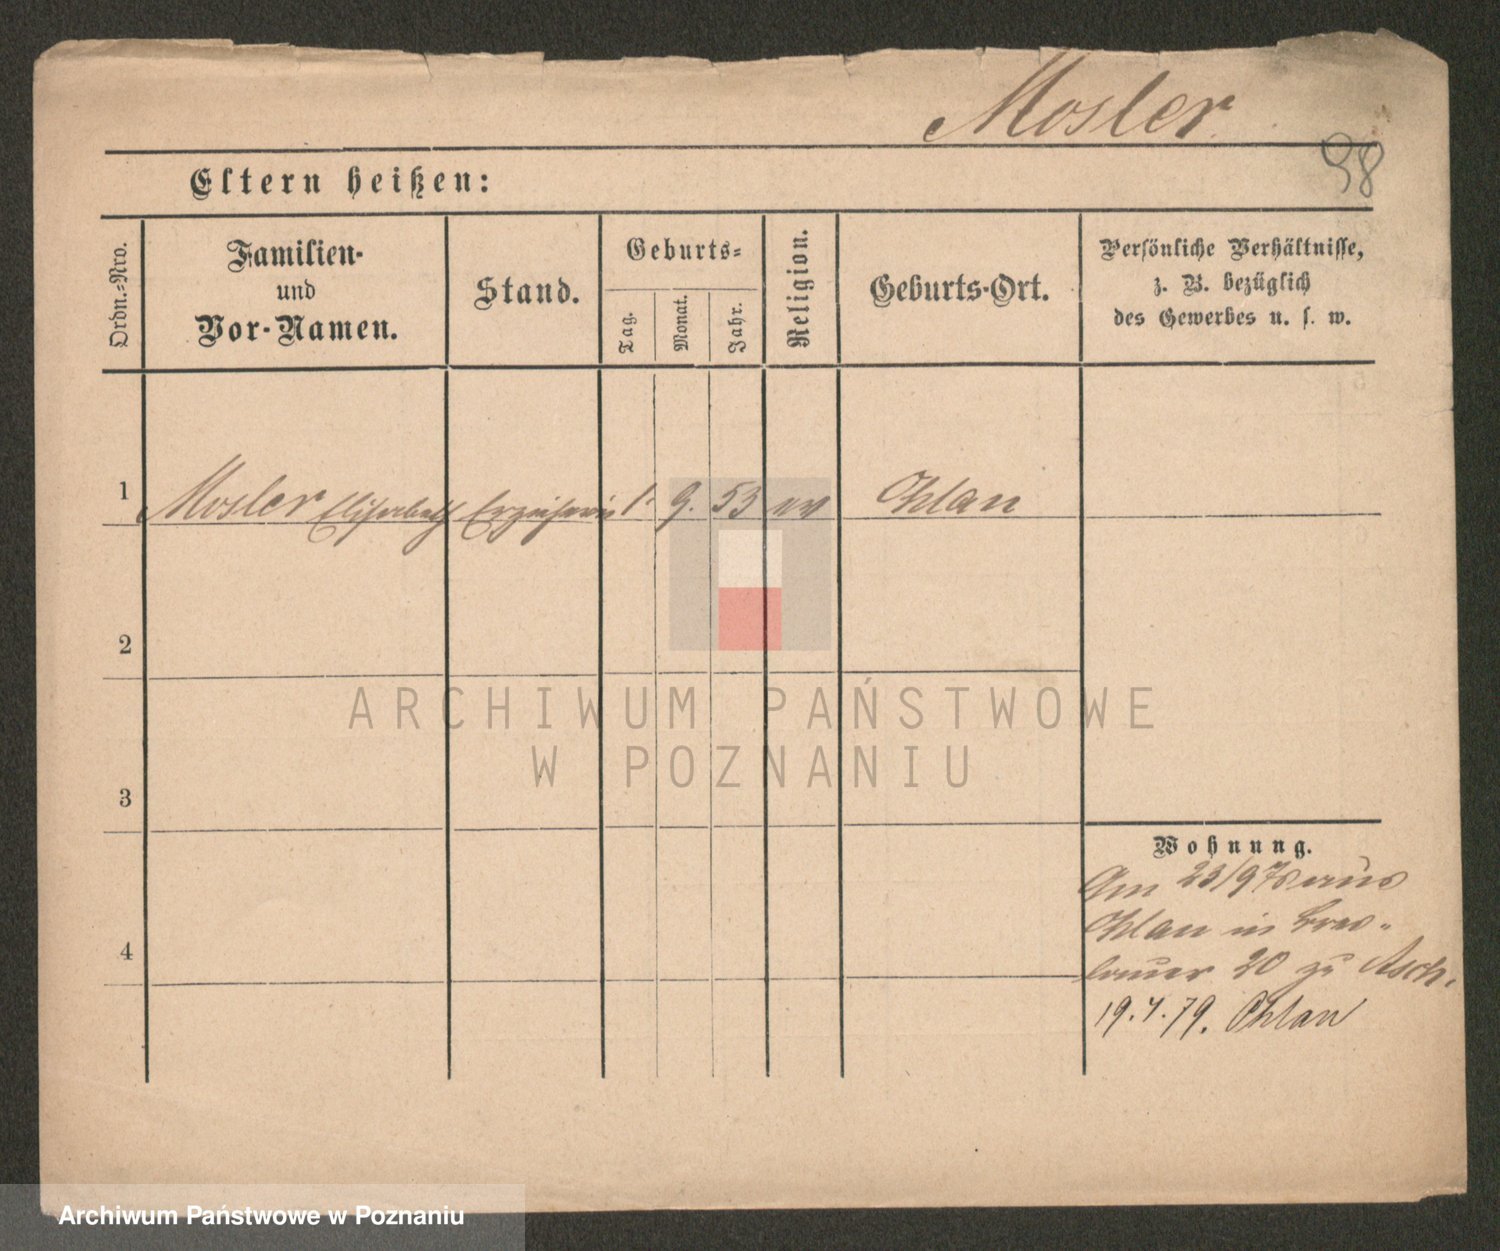 Mosler
98
Eltern heißen:
Ordn.-Nro.
Familien-
und
Vor-Namen.
Stand.
Geburts-
Tag.
Monat.
Jahr.
Religion.
Geburts-Ort.
Persönliche Verhältnisse,
z. B. bezüglich
des Gewerbes u. s. w.
1 Mosler Elisabeth Erzieherin 1. 9. 53 ev Ohlau
2
3
4
Wohnung.
Am 23/9 78 aus
Ohlau in Bres-
lauer 20 zu Asch.
19.4.79. Ohlau
ARCHIWUM PAŃSTWOWE
W POZNANIU
Archiwum Państwowe w Poznaniu